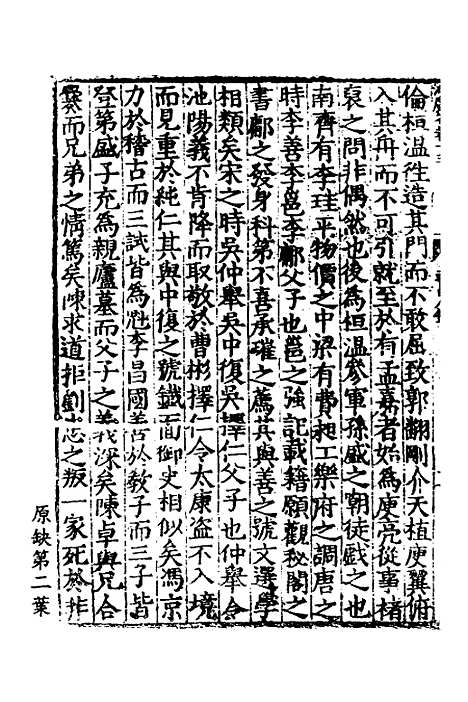 倫桓溫往造其門而不敢屈致郭翻剛介天植庾翼俯
入其舟而不可引就至於有孟嘉者始為庾亮從事褚
裒之問非偶然也後為桓溫參軍孫盛之朝徒戲之也
南齊有李珪平物價之中梁有費昶工樂府之調唐之
時李善李邕李鄘父子也邕之強記載籍願觀秘閣之
書鄘之發身科第不喜承璀之薦其與善之號文選學
相類矣宋之時吳仲舉吳中復吳擇仁父子也仲舉令
池陽義不肯降而取敬於曹彬擇仁令太康盗不入境
而見重於純仁其與中復之號鐵面御史相似矣馮京
力於稽古而三試皆為魁李昌國善於教子而三子皆
登第盛子充為親廬墓而父子之義深矣陳卓與兄合
爨而兄弟之情篤矣陳求道拒劉忠之叛一家死於拒
原缺第二葉